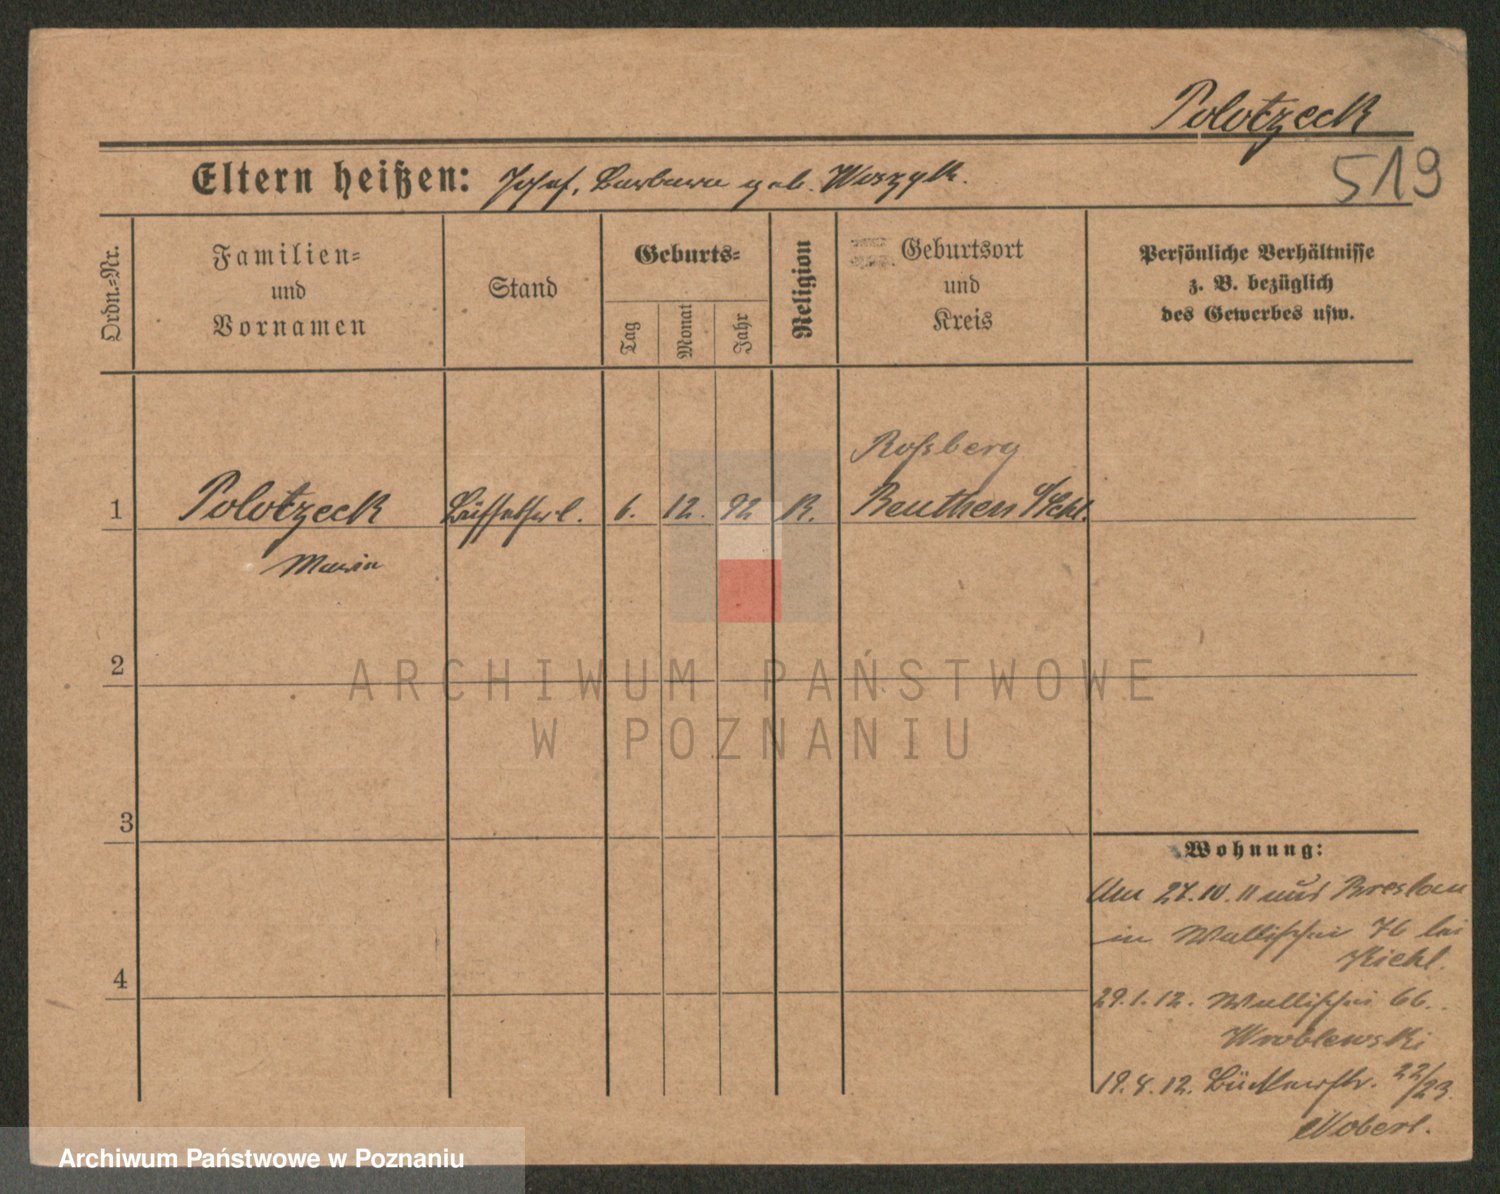 Polotzeck
519
Eltern heißen: Josef, Barbara geb. Woszyk.
Ordn.-Nr.
Familien- und Vornamen
Stand
Geburts-
Tag
Monat
Jahr
Religion
Geburtsort und Kreis
Persönliche Verhältnisse
z. B. bezüglich
des Gewerbes usw.
Roßberg
1 Polotzeck 6. 12. 92 K. Beuthen O/Schl.
Maria
2
ARCHIWUM PAŃSTWOWE
W POZNANIU
3
Wohnung:
Am 27.10.11 aus Breslau
in Wallischei 76 bei
Kiehl.
4
29.1.12. Wallischei 66.
Wroblewski
19.4.12. 22/23.
Archiwum Państwowe w Poznaniu